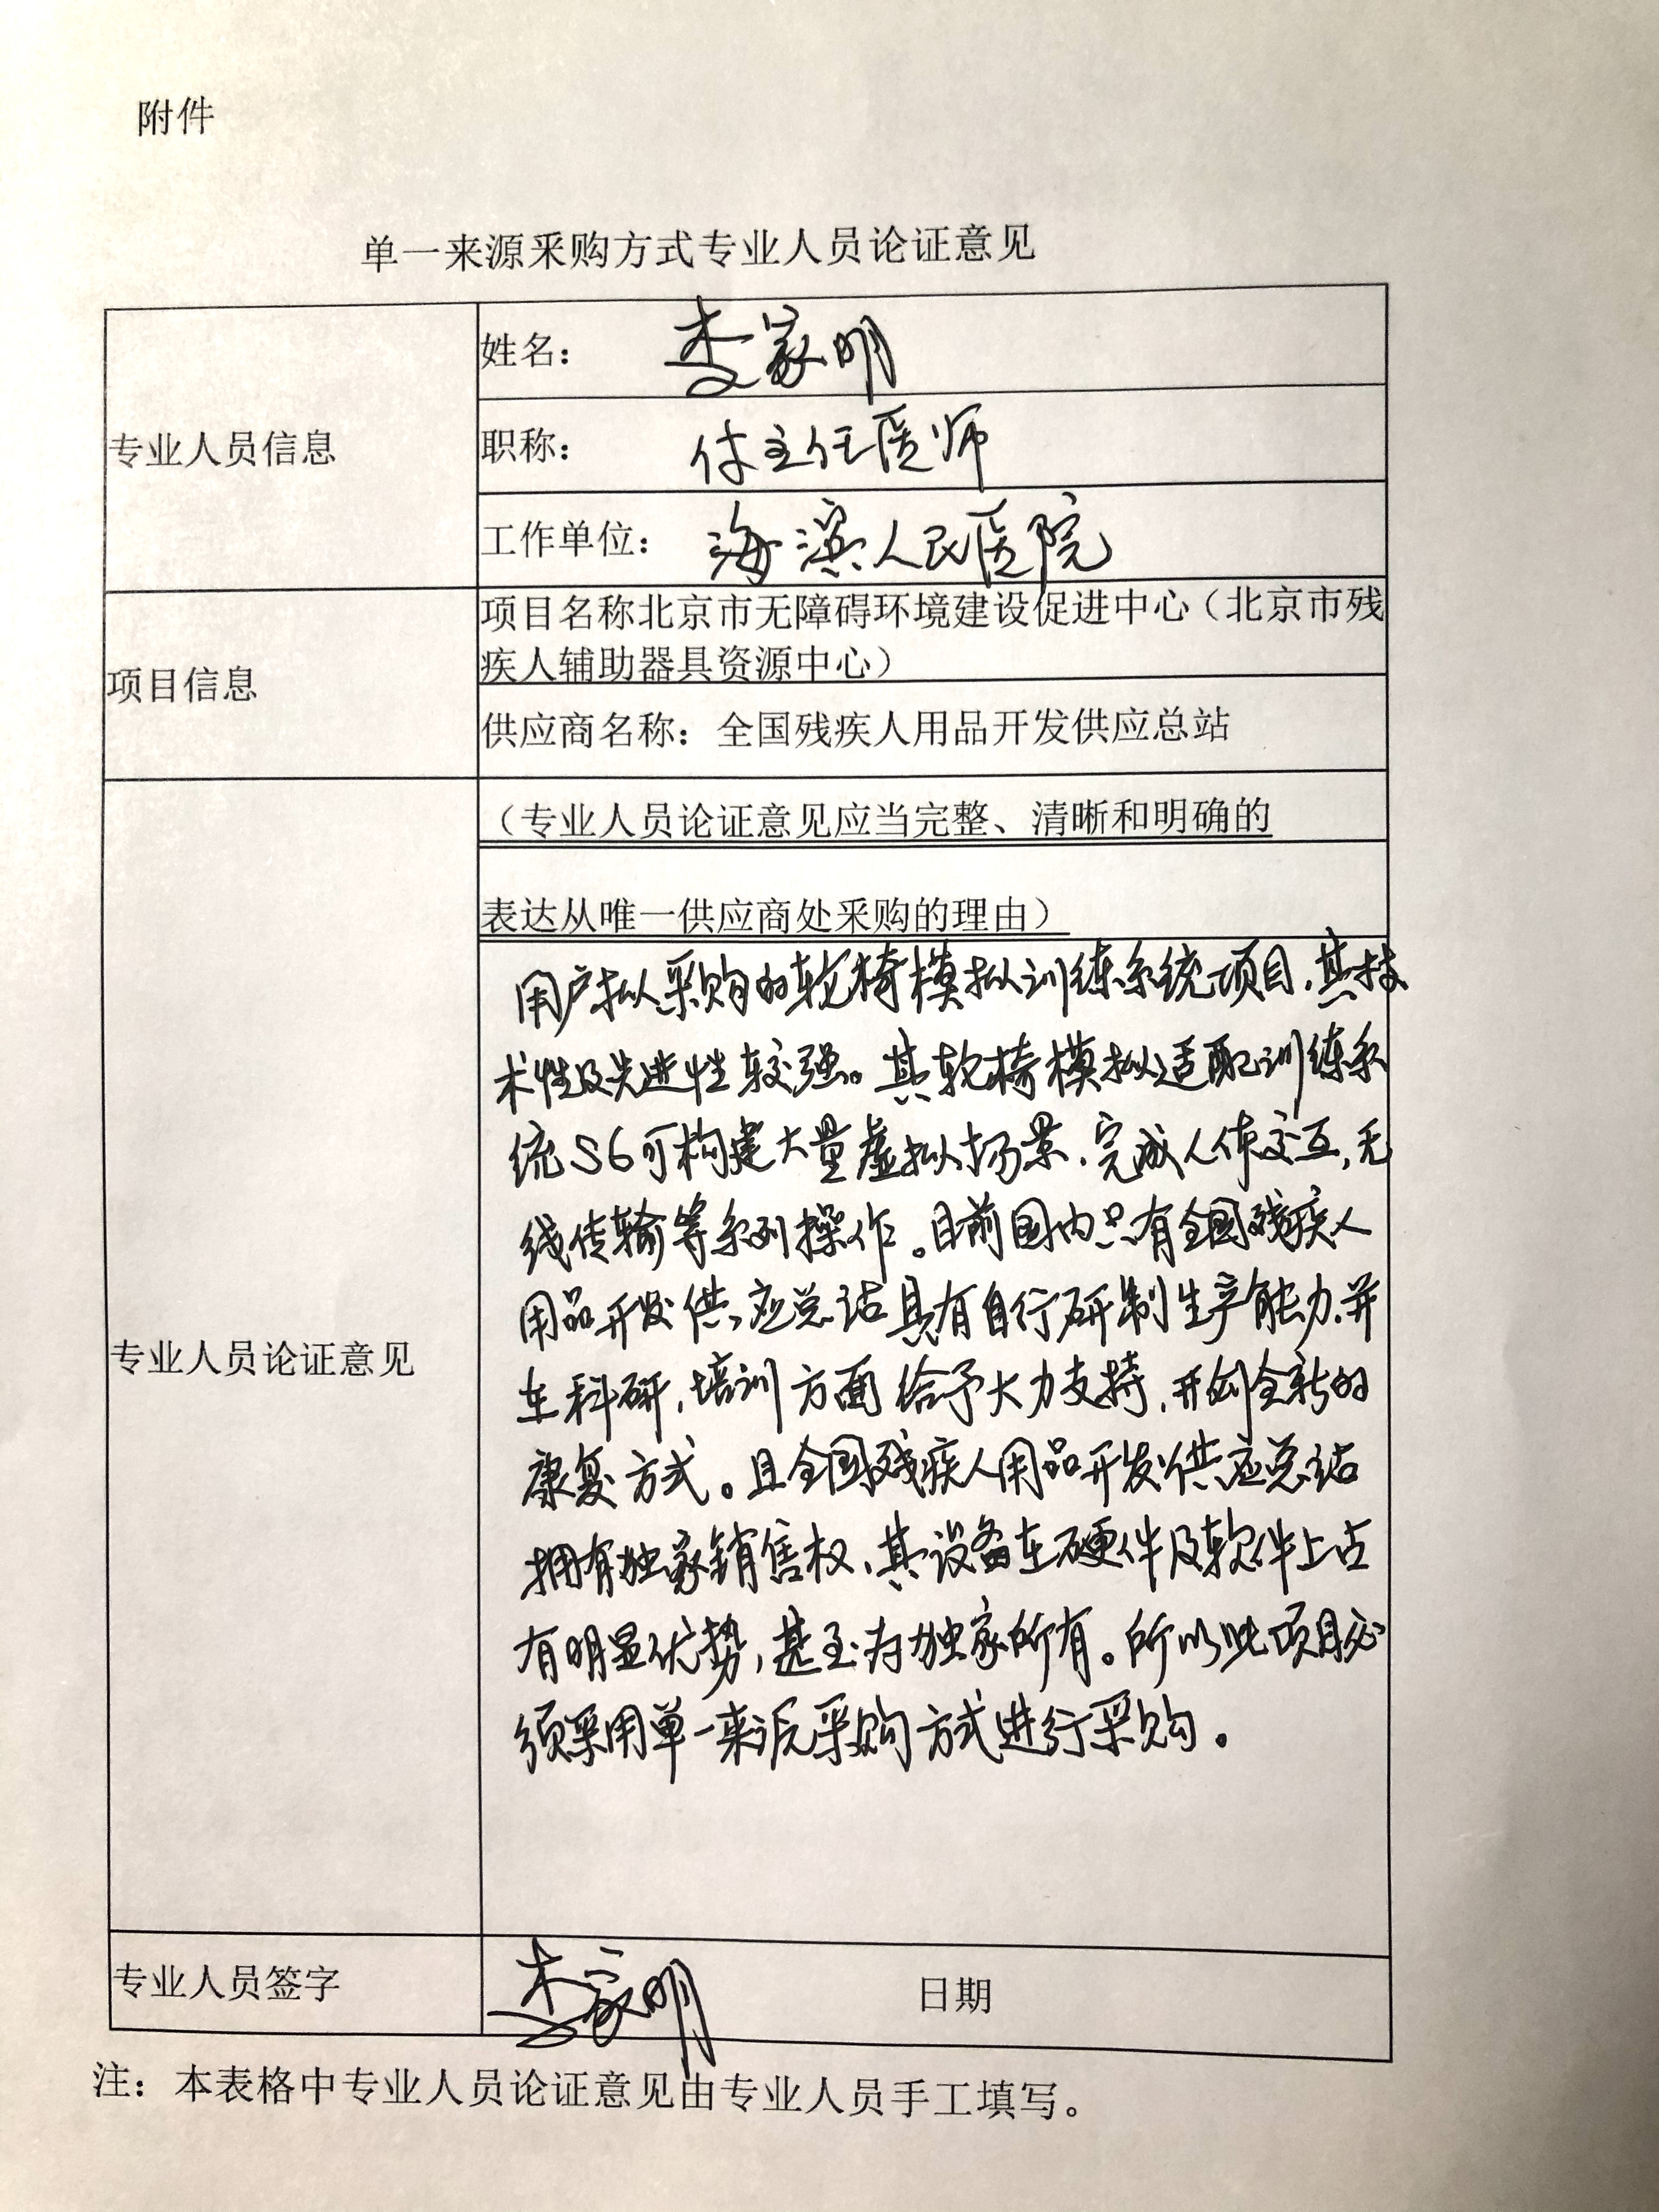 附件
单一来源采购方式专业人员论证意见
专业人员信息
姓名：李家明
职称：付主任医师
工作单位：海滨人民医院
项目信息
项目名称北京市无障碍环境建设促进中心（北京市残
疾人辅助器具资源中心）
供应商名称：全国残疾人用品开发供应总站
专业人员论证意见
（专业人员论证意见应当完整、清晰和明确的
表达从唯一供应商处采购的理由）
用户拟采购的轮椅模拟训练系统项目，其技
术性及先进性较强。其轮椅模拟适配训练系
统S6可构建大量虚拟场景，完成人体交互，无
线传输等系列操作。目前国内只有全国残疾人
用品开发供应总站具有自行研制生产能力，并
在科研，培训方面给予大力支持，开创全新的
康复方式。且全国残疾人用品开发供应总站
拥有独家销售权，其设备在硬件及软件上占
有明显优势，甚至为独家所有。所以此项目必
须采用单一来源采购方式进行采购。
专业人员签字
李家明
日期
注：本表格中专业人员论证意见由专业人员手工填写。